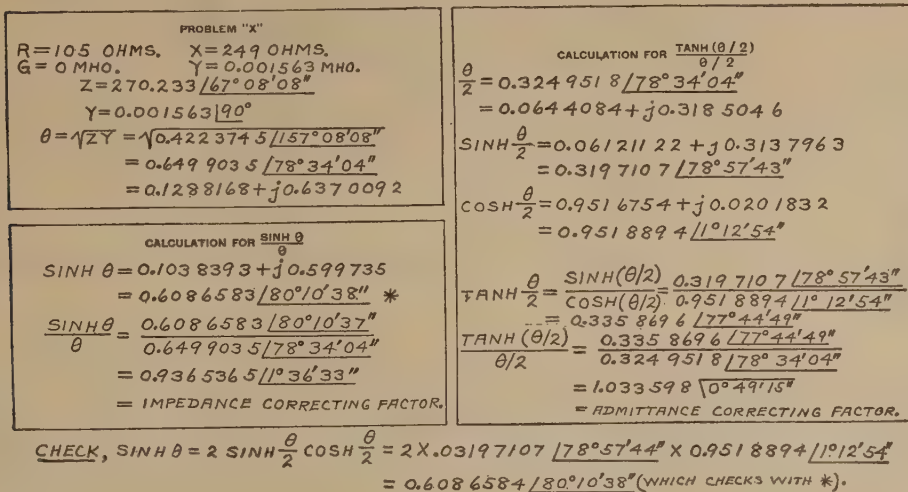 PROBLEM "X"
R=105 OHMS. X=249 OHMS.
G=0 MHO. Y=0.001563 MHO.
Z=270.233/67°08'08"
Y=0.001563|90°
θ=√ZY=√0.4223745/157°08'08"
=0.6499035/78°34'04"
=0.1288168+j0.6370092
CALCULATION FOR SINH θ/θ
SINH θ=0.1038393+j0.599735
=0.6086583/80°10'38" *
SINHθ/θ=0.6086583/80°10'37"/0.6499035/78°34'04"
=0.9365365/1°36'33"
=IMPEDANCE CORRECTING FACTOR.
CALCULATION FOR TANH(θ/2)/θ/2
θ/2=0.3249518/78°34'04"
=0.0644084+j0.3185046
SINH θ/2=0.06121122+j0.3137963
=0.3197107/78°57'43"
COSH θ/2=0.9516754+j0.0201832
=0.9518894/1°12'54"
TANH θ/2=SINH(θ/2)/COSH(θ/2)=0.3197107/78°57'43"/0.9518894/1°12'54"
=0.3358696/77°44'49"
TANH(θ/2)/θ/2=0.3358696/77°44'49"/0.3249518/78°34'04"
=1.033598\0°49'15"
=ADMITTANCE CORRECTING FACTOR.
CHECK, SINH θ=2 SINH θ/2 COSH θ/2=2X.03197107/78°57'44"X0.9518894/1°12'54"
=0.6086584/80°10'38"(WHICH CHECKS WITH *).